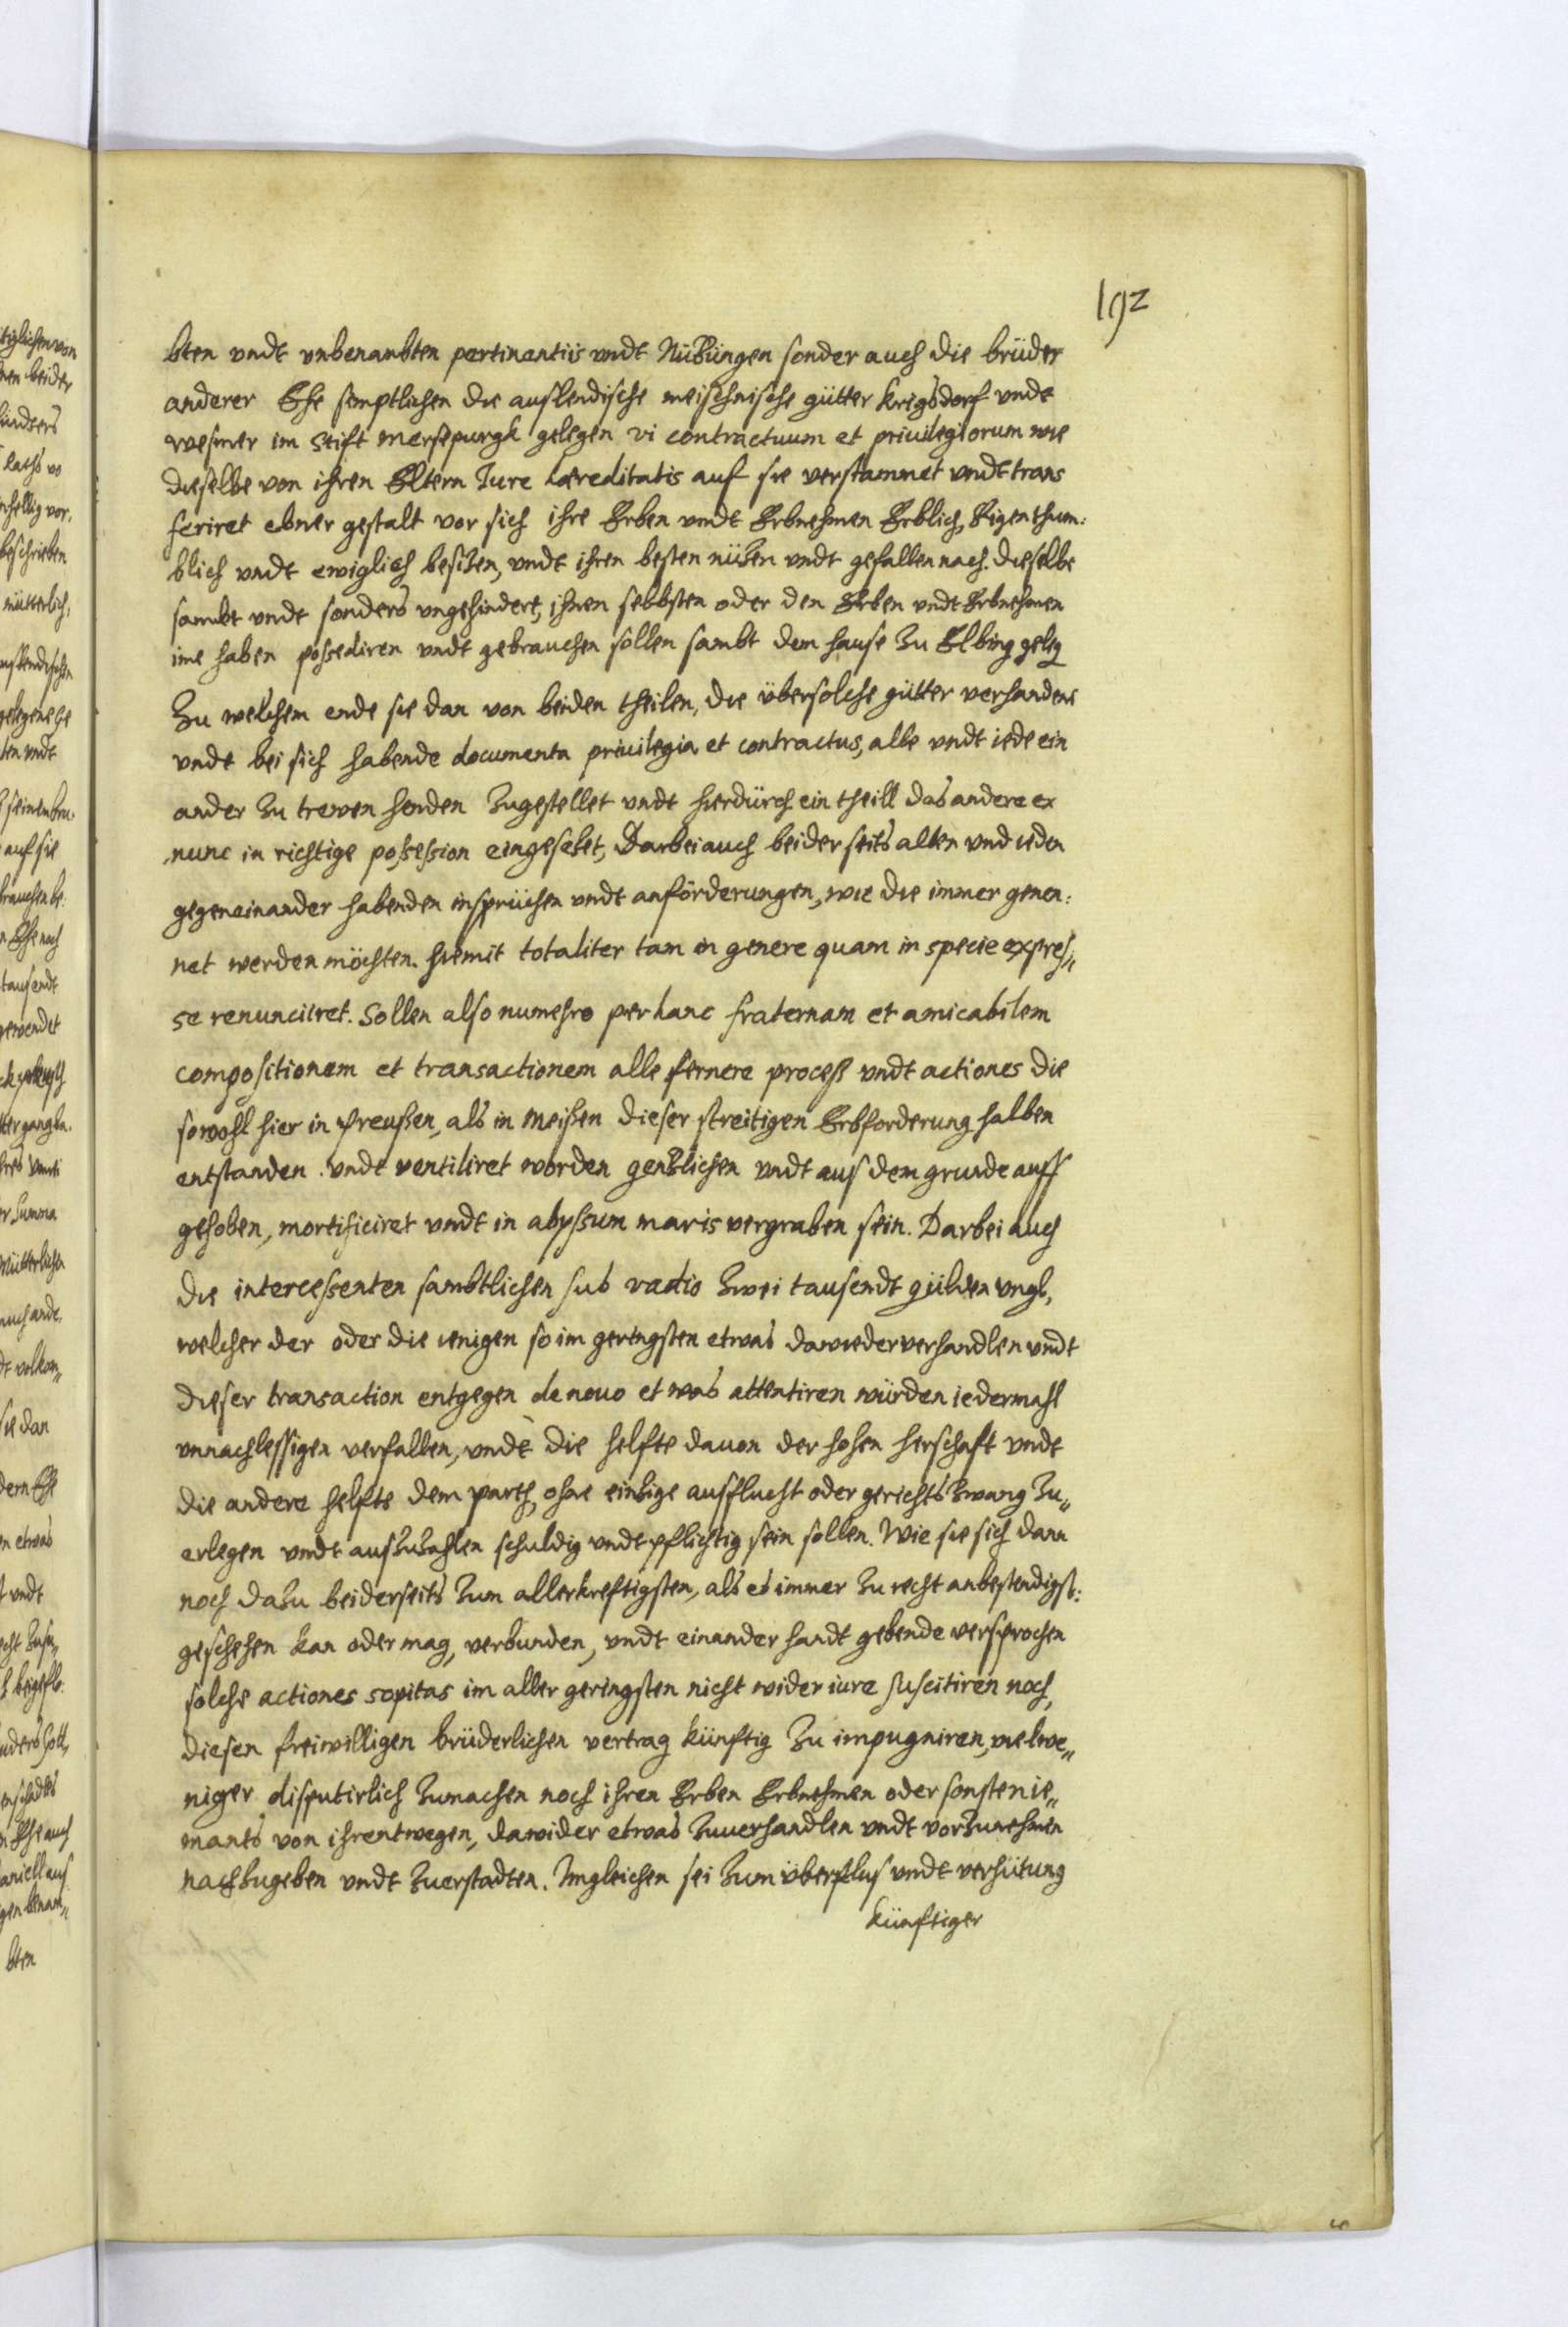 192
bten vndt vnbenanbten pertinantiis vndt Nützungen sonder auch die brüder
anderer Ehe semptlichen die auslendische meischnische gütter Krigsdorf vndt
wesmer im Stift Mersepurgk gelegen vi contractuum et priuilegiorum wie
dieselbe von ihren Eltern Jure haereditatis auf sie verstammet vndt trans
feriret ebner gestalt vor sich ihre Erben vndt Erbnehmen Erblich, Eigenthum:
blich vndt ewiglich besitzen, vndt ihren besten nützen vndt gefallen nach. dieselbe
sambt vndt sonders vngehindert, ihnen selbsten oder den Erben vndt Erbnehmen
ine haben possediren vndt gebrauchen sollen sambt dem hause zu Elbing geleg
Zu welchem ende sie dan von beiden theilen, die übersolche gütter verhandene
vndt bei sich habende documenta priuilegia et contractus, alle vndt iede ein
ander zu trewen henden zugestellet vndt hierdürch ein theill das andere ex
nunc in richtige possession eingesetzet, Darbei auch beiderseits allen vnd ieden
gegeneinander habenden insprüchen vndt anförderungen, wie die immer genen:
net werden möchten. hiemit totaliter tam in genere quam in specie expres„
se renunciiret. Sollen also numehro per hanc fraternam et amicabilem
compositionem et transactionem alle fernere proceß vndt actiones die
sowohl hier in Preußen, als in Meißen dieser streitigen Erbforderung halben
entstanden vndt ventiliret worden gentzlichen vndt aus dem grunde auff
gehoben, mortificiret vndt in abyssum maris vergraben sein. Darbei auch
die interessenten sambtlichen sub vadio zwei tausendt gülden vngl,
welcher der oder die ienigen so im geringsten etwas dawieder verhandlen vndt
dieser transaction entgegen de nouo etwas attentiren würden iedermahl
vnnachlessigen verfallen, vndt die helfte dauon der hohen herschaft vndt
die andere helfte dem parth, ohne eintzige ausflucht oder gerichtszwang zu„
erlegen vndt auszuzahlen schuldig vndt pflichtig sein sollen. Wie sie sich dann
noch dazu beiderseits zum allerkreftigsten, als es immer zu recht anbestendigst:
geschehen kan oder mag, verbunden, vndt einander handt gebende versprochen
solche actiones sopitas im aller geringsten nicht wider iure suscitiren noch,
diesen freiwilligen brüderlichen vertrag künftig zu impugniren, vielwe„
niger disputirlich zumachen noch ihren Erben Erbnehmen oder sonsten ie„
mants von ihrentwegen, dawider etwas zuuerhandlen vndt vorzunehmen
nachzugeben vndt zuerstadten. Imgleichen sei zum überflus vndt verhütung
künftiger